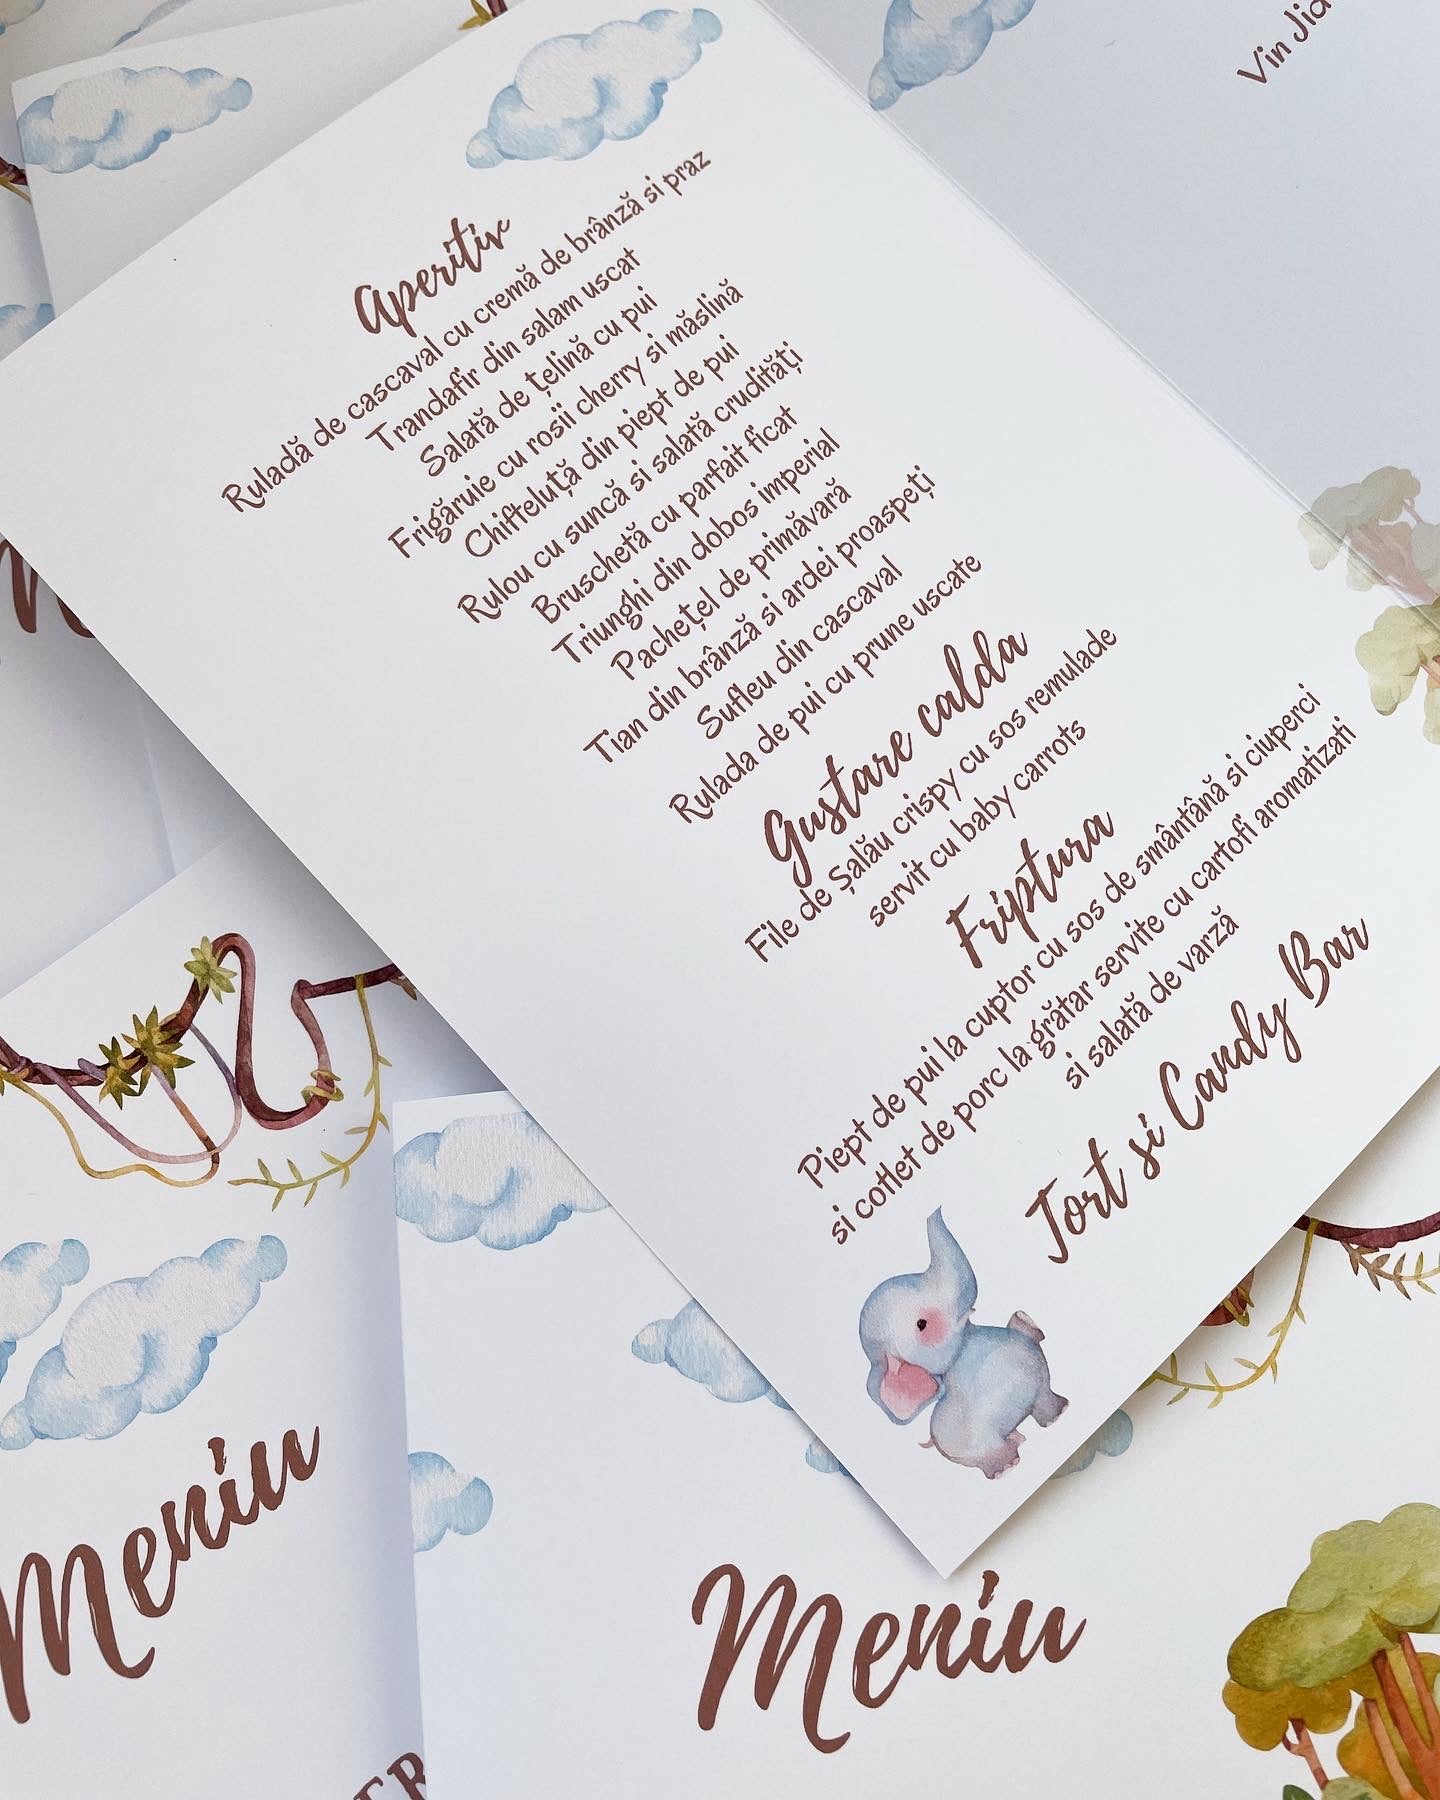 Vin
Aperitiv
Ruladă de cascaval cu cremă de brânză si praz
Trandafir din salam uscat
Salată de țelină cu pui
Frigăruie cu rosii cherry si măslină
Chifteluță din piept de pui
Rulou cu suncă si salată crudități
Bruschetă cu parfait ficat
Triunghi din dobos imperial
Pachețel de primăvară
Tian din brânză si ardei proaspeți
Sufleu din cascaval
Rulada de pui cu prune uscate
Gustare calda
File de Șalău crispy cu sos remulade
servit cu baby carrots
Friptura
Piept de pui la cuptor cu sos de smântână si ciuperci
si cotlet de porc la grătar servite cu cartofi aromatizati
si salată de varză
Tort si Candy Bar
Meniu
Meniu